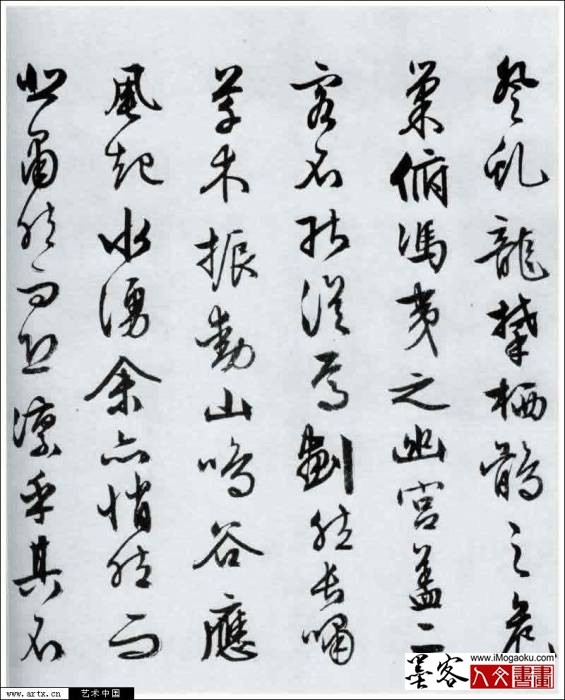 登虬龍攀栖鶻之危
巢俯馮夷之幽宮蓋二
客不能從焉劃然長嘯
草木振動山鳴谷應
風起水湧余亦悄然而
悲肅然而恐凛乎其不
www.artx.cn 艺术中国
www.iMogaoku.com
墨客
人文書畫